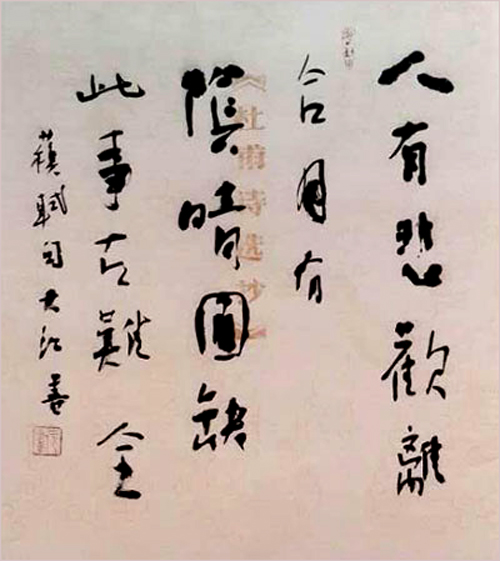 人有悲歡離
合月有
陰晴圓缺
此事古難全
蘇軾句大江書
《杜甫诗选抄》